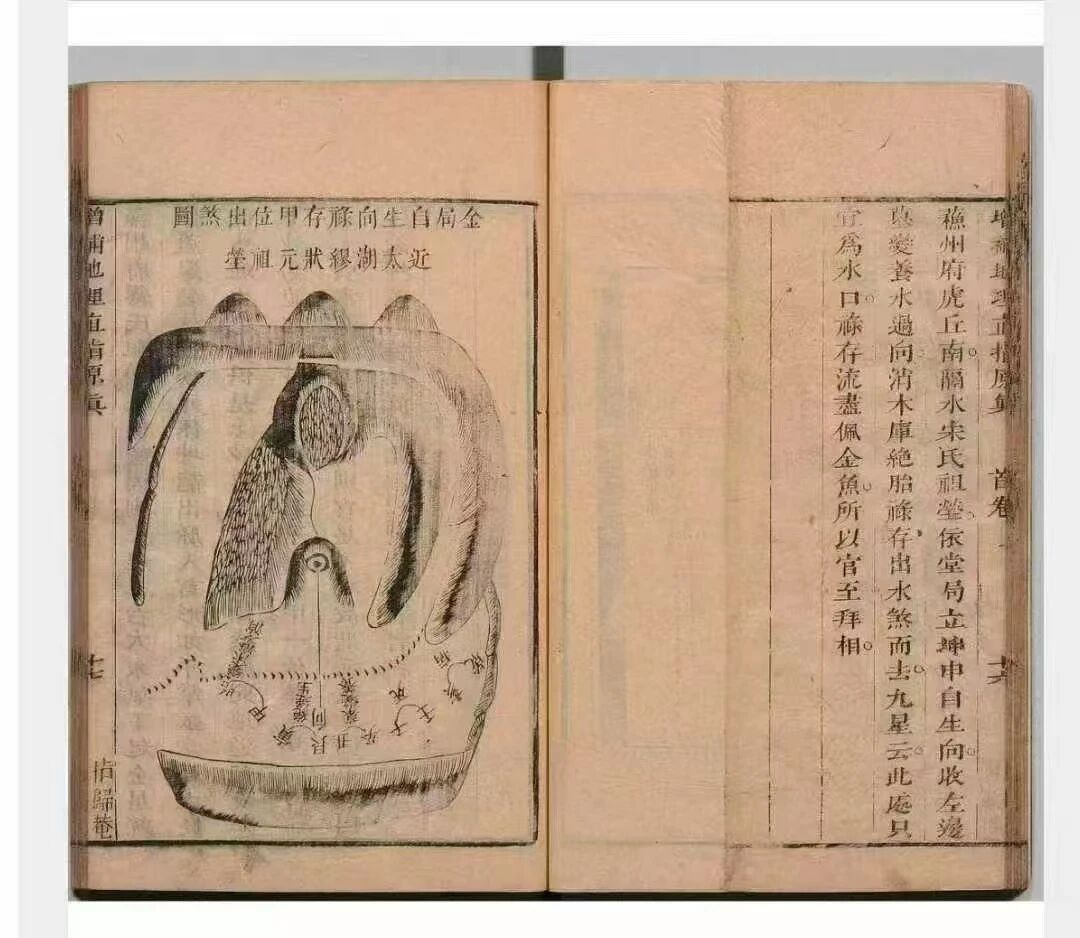 增補地理直指原真 首卷 十六
蘓州府虎丘南。隔水宋氏祖塋。依堂局立坤申自生向。收左邊
變養水過向。消木庫絕胎祿存出水煞而去。九星云。此處只
宜爲水口。祿存流盡佩金魚。所以官至拜相。
金局自生向祿存甲位出煞圖
近太湖繆狀元祖塋
向
艮
丑
增補地理直指原真
十七
指歸菴